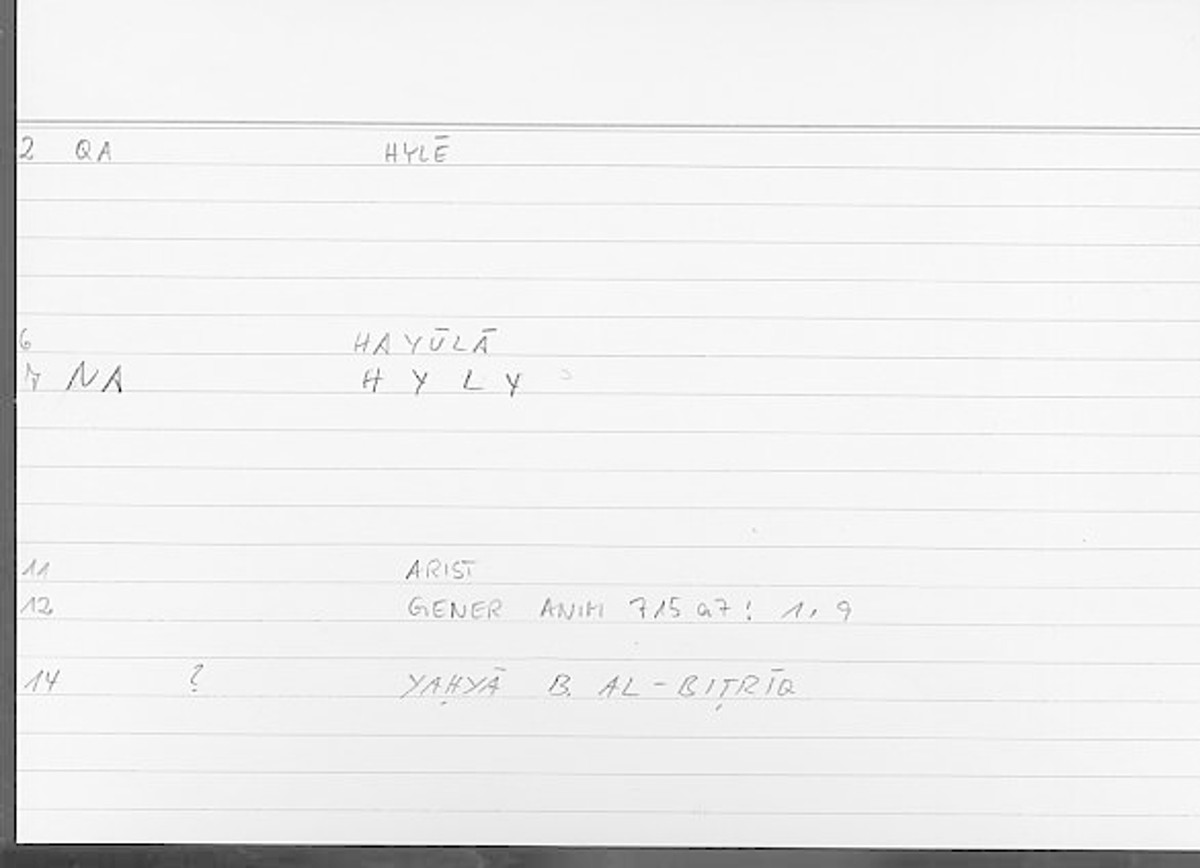 2 QA HYLĒ
6 HAYŪLĀ
7 NA H Y L Y
11 ARIST
12 GENER ANIM 715 a7 : 1, 9
14 ? YAḤYĀ B. AL-BIṬRĪQ